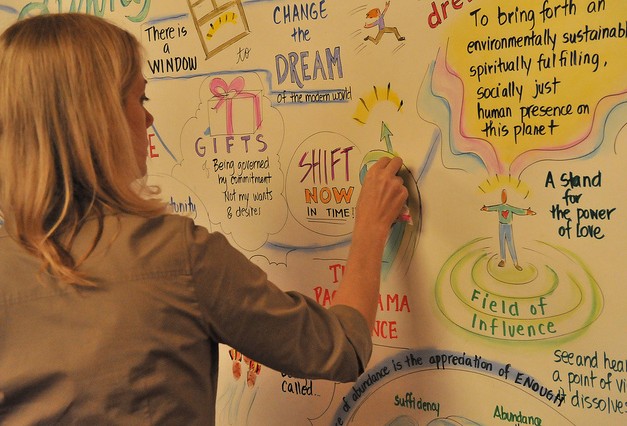 THERE IS
A
WINDOW
to
CHANGE
the
DREAM
of the modern world
To bring forth an
environmentally sustainabl
spiritually fulfilling,
socially just
human presence on
this planet
GIFTS
Being governed
by commitment
Not my wants
& desires
SHIFT
NOW
IN TIME!
A stand
for the
the power
of Love
Field of
Influence
called...
of abundance is the appreciation of ENOUGH
sufficiency
Abundance
see and hea
a point of vi
dissolves